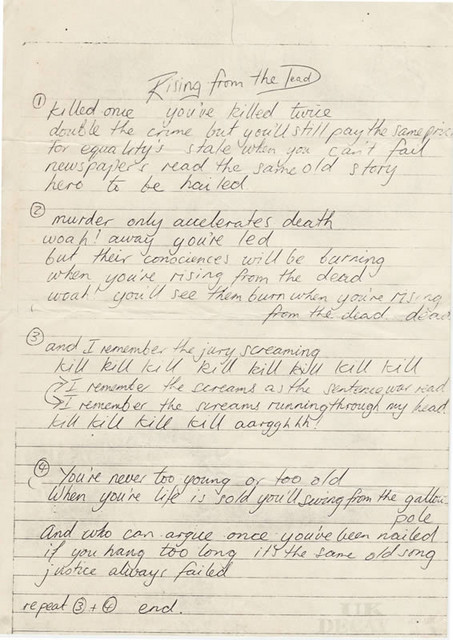 Rising from the Dead
① killed once you've killed twice
double the crime but you'll still pay the same price
for equality's stale when you can't fail
newspapers read the same old story
hero to be hailed
② murder only accelerates death
woah! away you're led
but their consciences will be burning
when you're rising from the dead
woah! you'll see them burn when you're rising
from the dead dead
③ and I remember the jury screaming
kill kill kill kill kill kill kill kill
I remember the screams as the sentence was read
I remember the screams running through my head
kill kill kill kill aargghhh!
④ You're never too young or too old
When you're life is sold you'll swing from the gallows
pole
And who can argue once you've been nailed
if you hang too long it's the same old song
justice always failed
repeat ③ + ④ end.
UK
DECAY